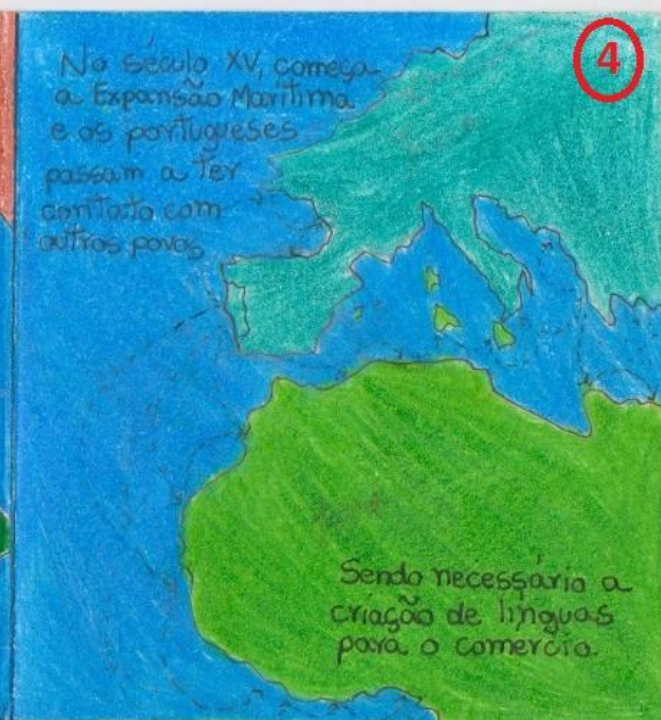 4
No século XV, começa
a Expansão Marítima
e os portugueses
passam a ter
contato com
outros povos
Sendo necessário a
criação de línguas
para o comercio.